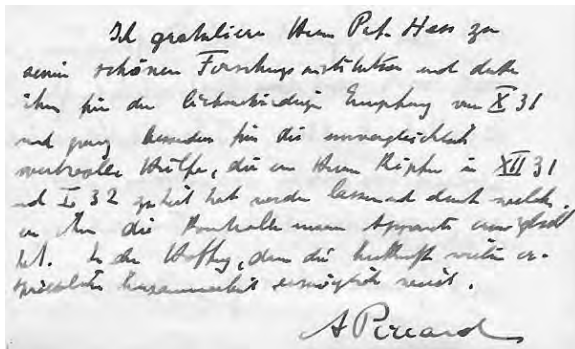 Ich gratuliere Herrn Prof. Hess zu
seinen schönen Forschungsinstituten und danke
ihm für den liebenswürdigen Empfang von X 31
und ganz besonders für die unvergleichlich
wertvolle Hülfe, die er Herrn Kipfer in XII 31
und I 32 hat werden lassen und durch welche
er ihm die Kontrolle meiner Apparate ermöglicht
hat. In der Hoffnung, dass die Zukunft weitere er-
spriessliche Zusammenarbeit ermöglichen wird.
A Piccard